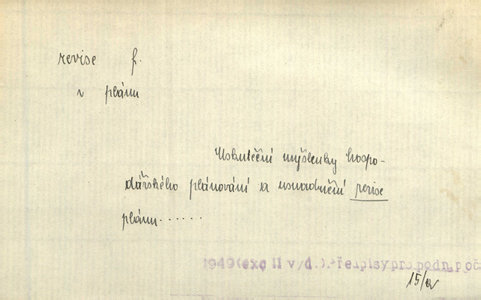 revise f.
v plánu
Uskutečnění myšlenky hospo-
dářského plánování a usnadnění revise
plánu......
1949(exc II v/d.).Předpisy pro podn.poč
15/